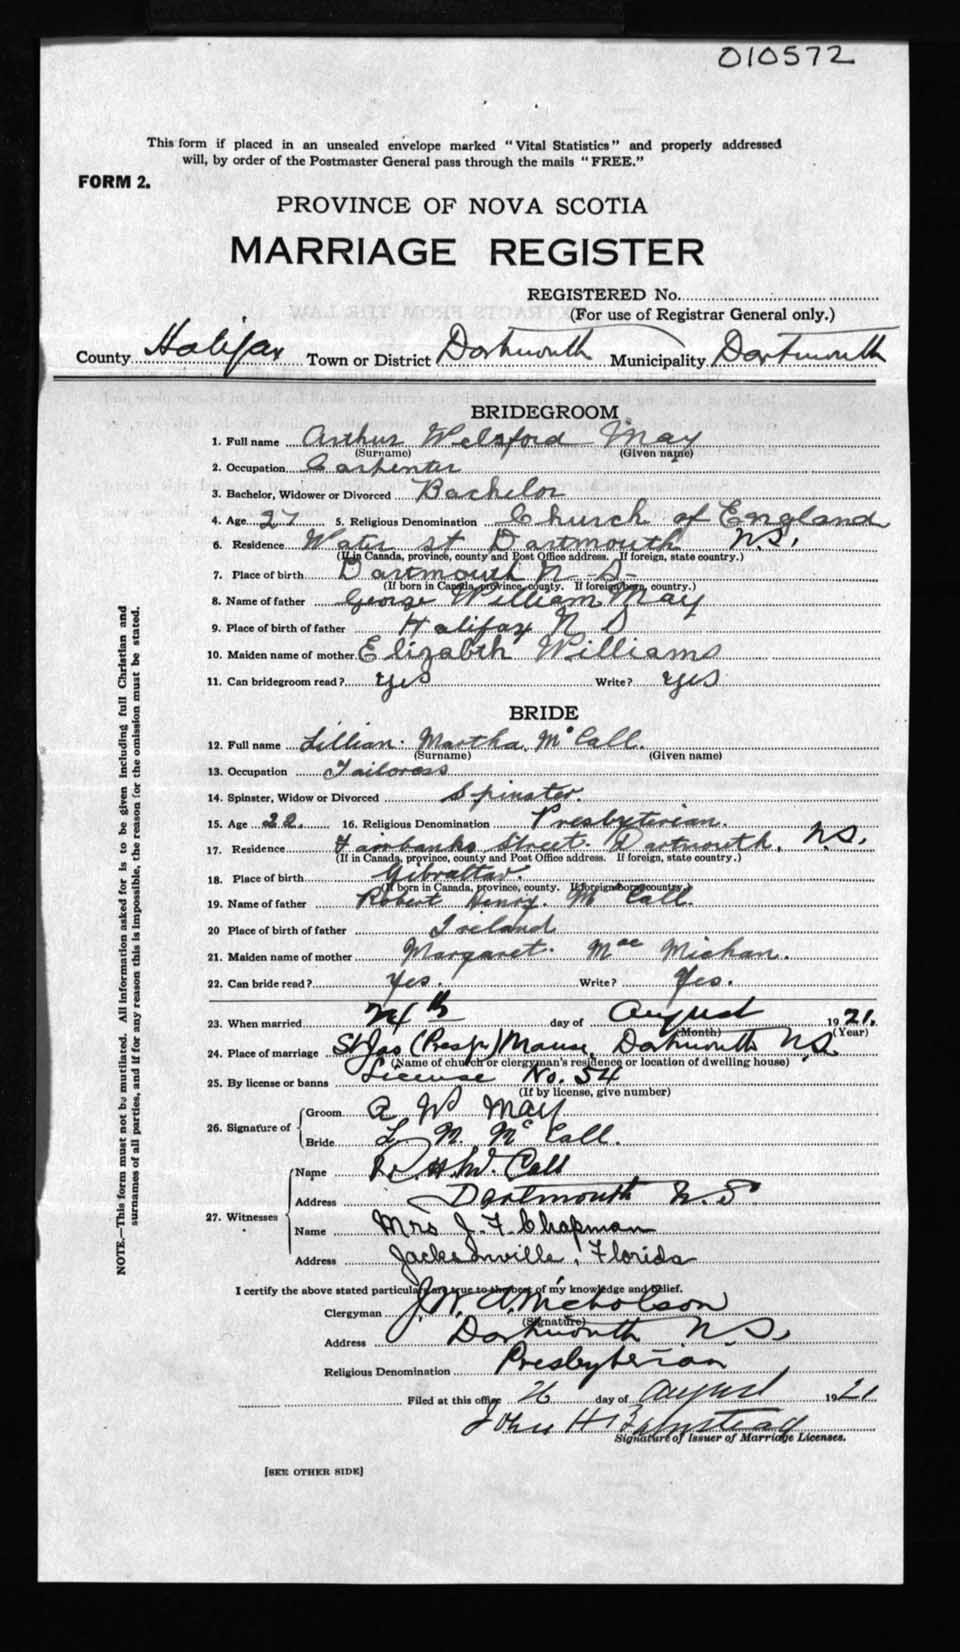 010572
This form if placed in an unsealed envelope marked "Vital Statistics" and properly addressed
will, by order of the Postmaster General pass through the mails "FREE."
FORM 2.
PROVINCE OF NOVA SCOTIA
MARRIAGE REGISTER
REGISTERED No.
(For use of Registrar General only.)
County Halifax Town or District Dartmouth Municipality Dartmouth
BRIDEGROOM
1. Full name Arthur Welsford May
(Surname) (Given name)
2. Occupation Carpenter
3. Bachelor, Widower or Divorced Bachelor
4. Age 27 5. Religious Denomination Church of England
6. Residence Water st Dartmouth N.S.
(If in Canada, province, county and Post Office address. If foreign, state country.)
7. Place of birth Dartmouth N-S-
(If born in Canada, province, county. If foreign born, country.)
8. Name of father George William May
9. Place of birth of father Halifax N S
10. Maiden name of mother Elizabth Williams
11. Can bridegroom read? yes Write? yes
BRIDE
12. Full name Lillian Martha McCall.
(Surname) (Given name)
13. Occupation Tailoress
14. Spinster, Widow or Divorced Spinster.
15. Age 22. 16. Religious Denomination Presbyterian.
17. Residence Fairbanks Street. Dartmouth. N.S.
(If in Canada, province, county and Post Office address. If foreign, state country.)
18. Place of birth Gibraltar.
(If born in Canada, province, county. If foreign born country.)
19. Name of father Robert Henry. Mc Call.
20 Place of birth of father Ireland
21. Maiden name of mother Margaret. Mac Miehan.
22. Can bride read? Yes. Write? Yes.
23. When married 24th day of August 1921.
(Month) (Year)
24. Place of marriage St Jas (Presn) Manse, Dartmouth N.S.
(Name of church or clergyman's residence or location of dwelling house)
25. By license or banns License No. 54
(If by license, give number)
26. Signature of
Groom A W May
Bride L M McCall.
27. Witnesses
Name R H Mc Call
Address Dartmouth N.S
Name Mrs J. F. Chapman
Address Jacksonville, Florida
I certify the above stated particulars are true to the best of my knowledge and belief.
Clergyman J. W. A. Nicholson
(Signature)
Address Dartmouth N.S.
Religious Denomination Presbyterian
Filed at this office 26 day of August 1921
John H
Signature of Issuer of Marriage Licenses.
[SEE OTHER SIDE]
NOTE.—This form must not be mutilated. All information asked for is to be given including full Christian and
surnames of all parties, and if for any reason this is impossible, the reason for the omission must be stated.